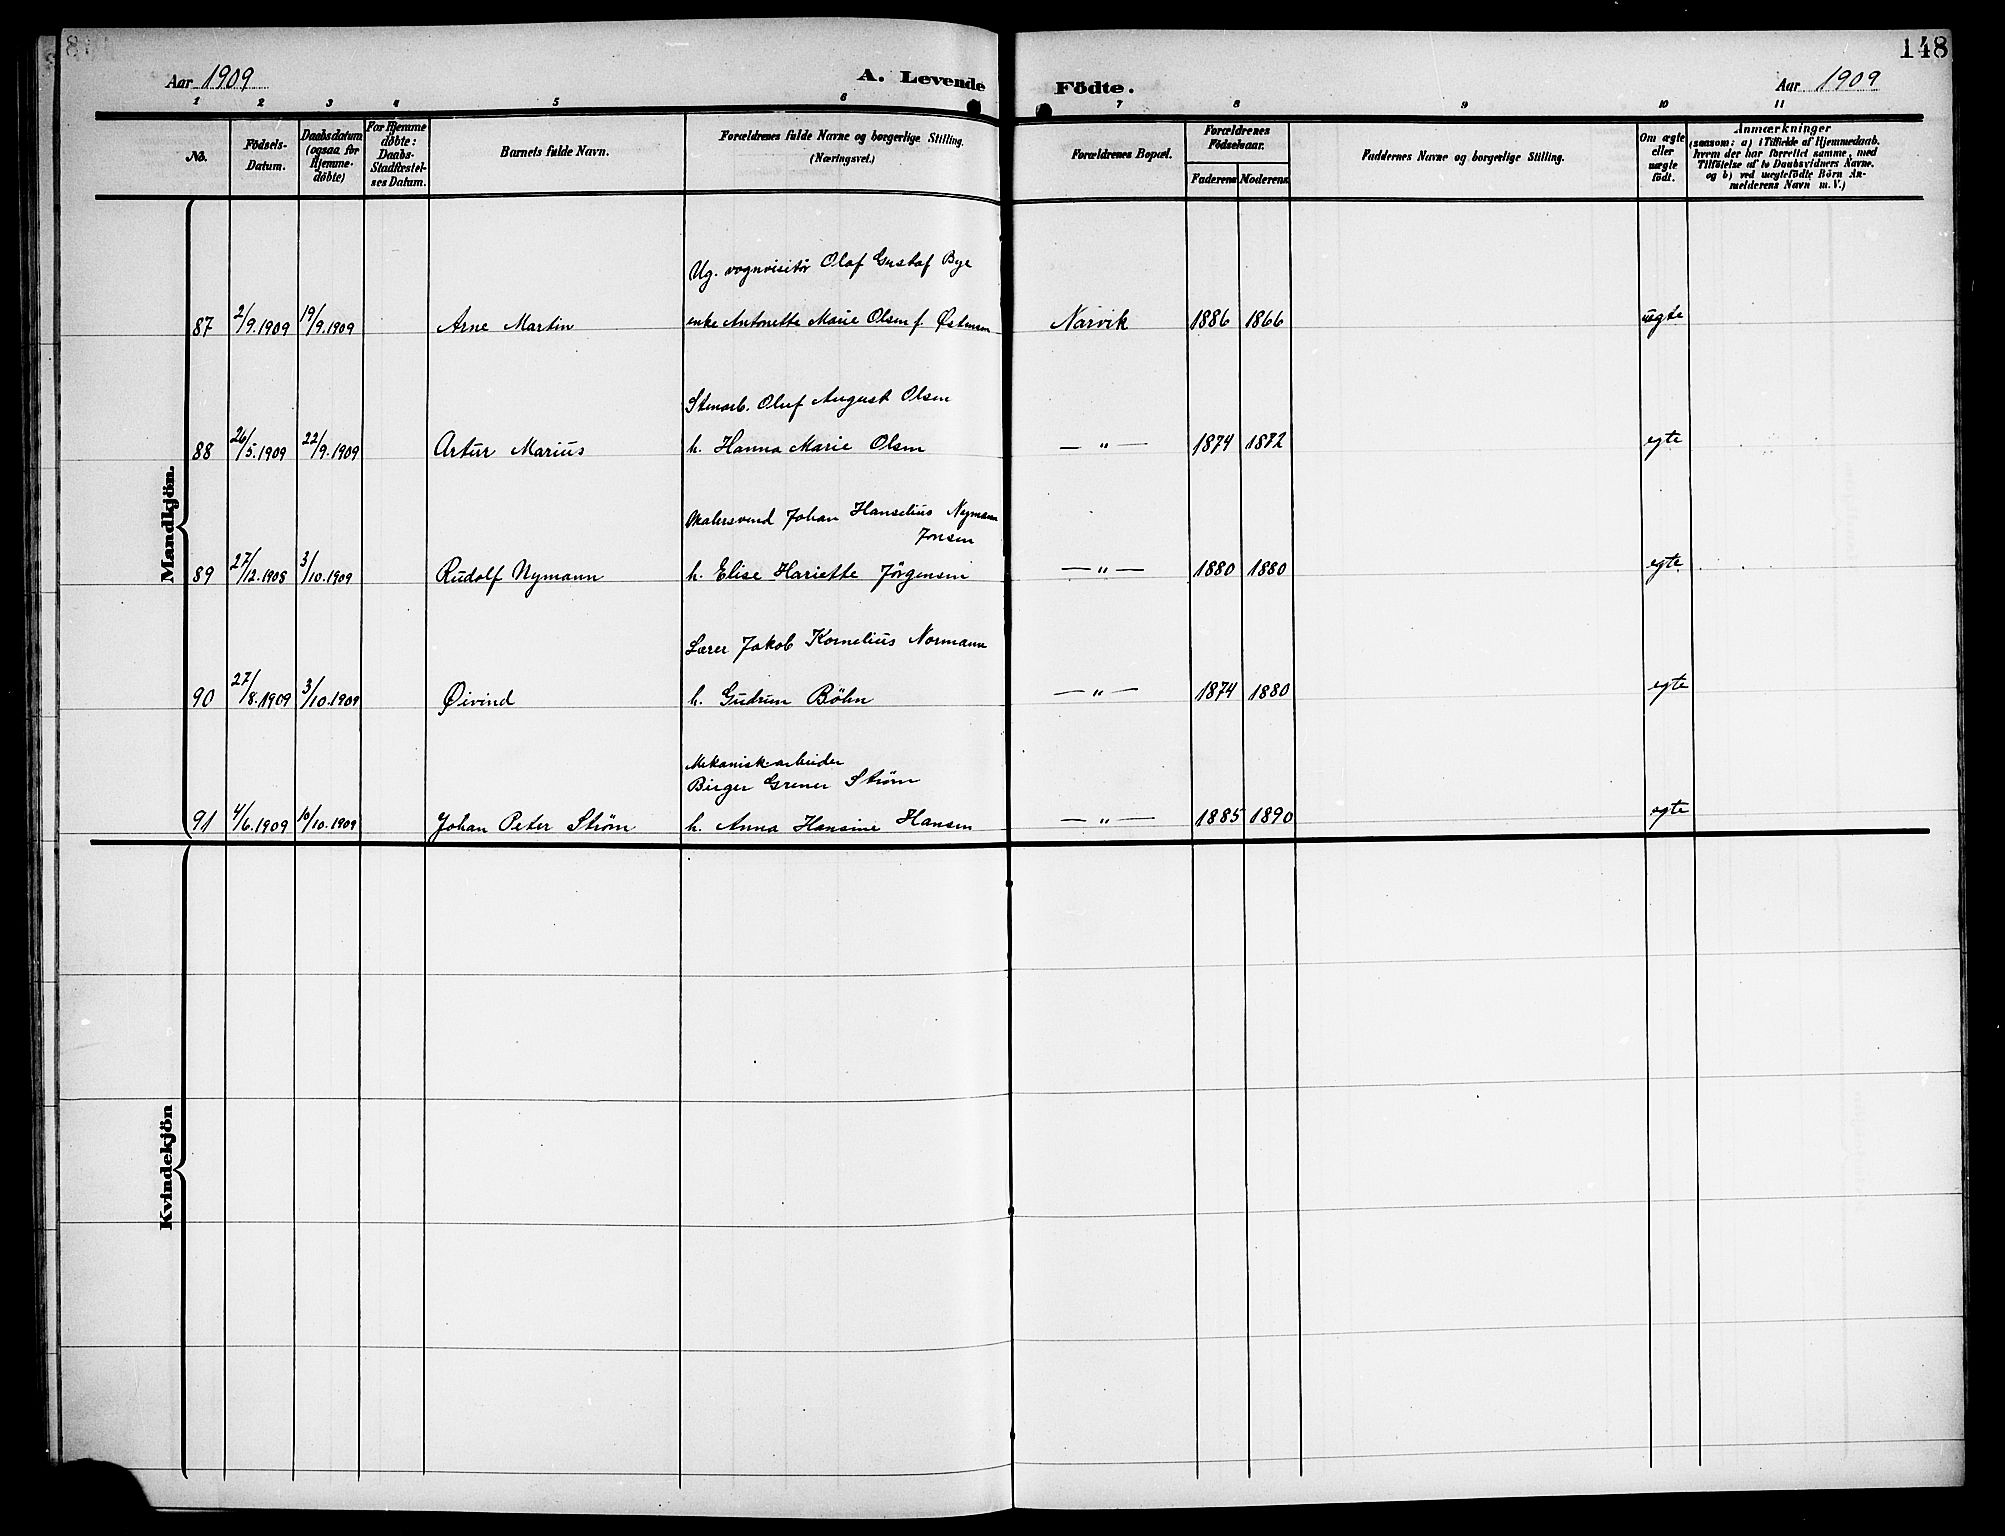 148
Aar 1909
A. Levende Födte.
Aar 1909
1 2 3 4 5 6 7 8 9 10 11
No.
Födsels-
Datum.
Daabsdatum
(ogsaa for
Hjemme-
døbte)
For Hjemme
døbte:
Daabs-
Stadfæstel-
ses Datum.
Barnets fulde Navn.
Forældrenes fulde Navne og borgerlige Stilling.
(Næringsvei.)
Forældrenes Bopæl.
Forældrenes
Födselsaar.
Faderens Moderens
Faddernes Navne og borgerlige Stilling.
Om ægte
eller
uægte
födt.
Anmærkninger
(saasom: a) i Tilfælde af Hjemmedaab.
hvem der har forrettet samme, med
Tilföielse af to Daabsvidners Navne.
og b) ved uægtefödte Börn An-
melderens Navn m. V.)
Mandkjön.
Ug. vognvisitör Olaf Gustaf Bye
87 2/9.1909 19/9.1909 Arne Martin enke Antonette Marie Olsen f. Østmen Narvik 1886 1866 uegte
Stenarb. Oluf August Olsen
88 26/5.1909 22/9.1909 Artur Marius h. Hanna Marie Olsen — " — 1874 1872 egte
Malersvend Johan Hanselius Nymann
Jonsen
89 27/12.1908 3/10.1909 Rudolf Nymann h. Elise Hariette Jørgensen — " — 1880 1880 egte
Lærer Jakob Kornelius Normann
90 27/8.1909 3/10.1909 Øivind h. Gudrun Bøhn — " — 1874 1880 egte
Mekaniskarbeider
Birger Grener Strøm
91 4/6.1909 10/10.1909 Johan Peter Strøm h. Anna Hansine Hansen — " — 1885 1890 egte
Kvindekjön